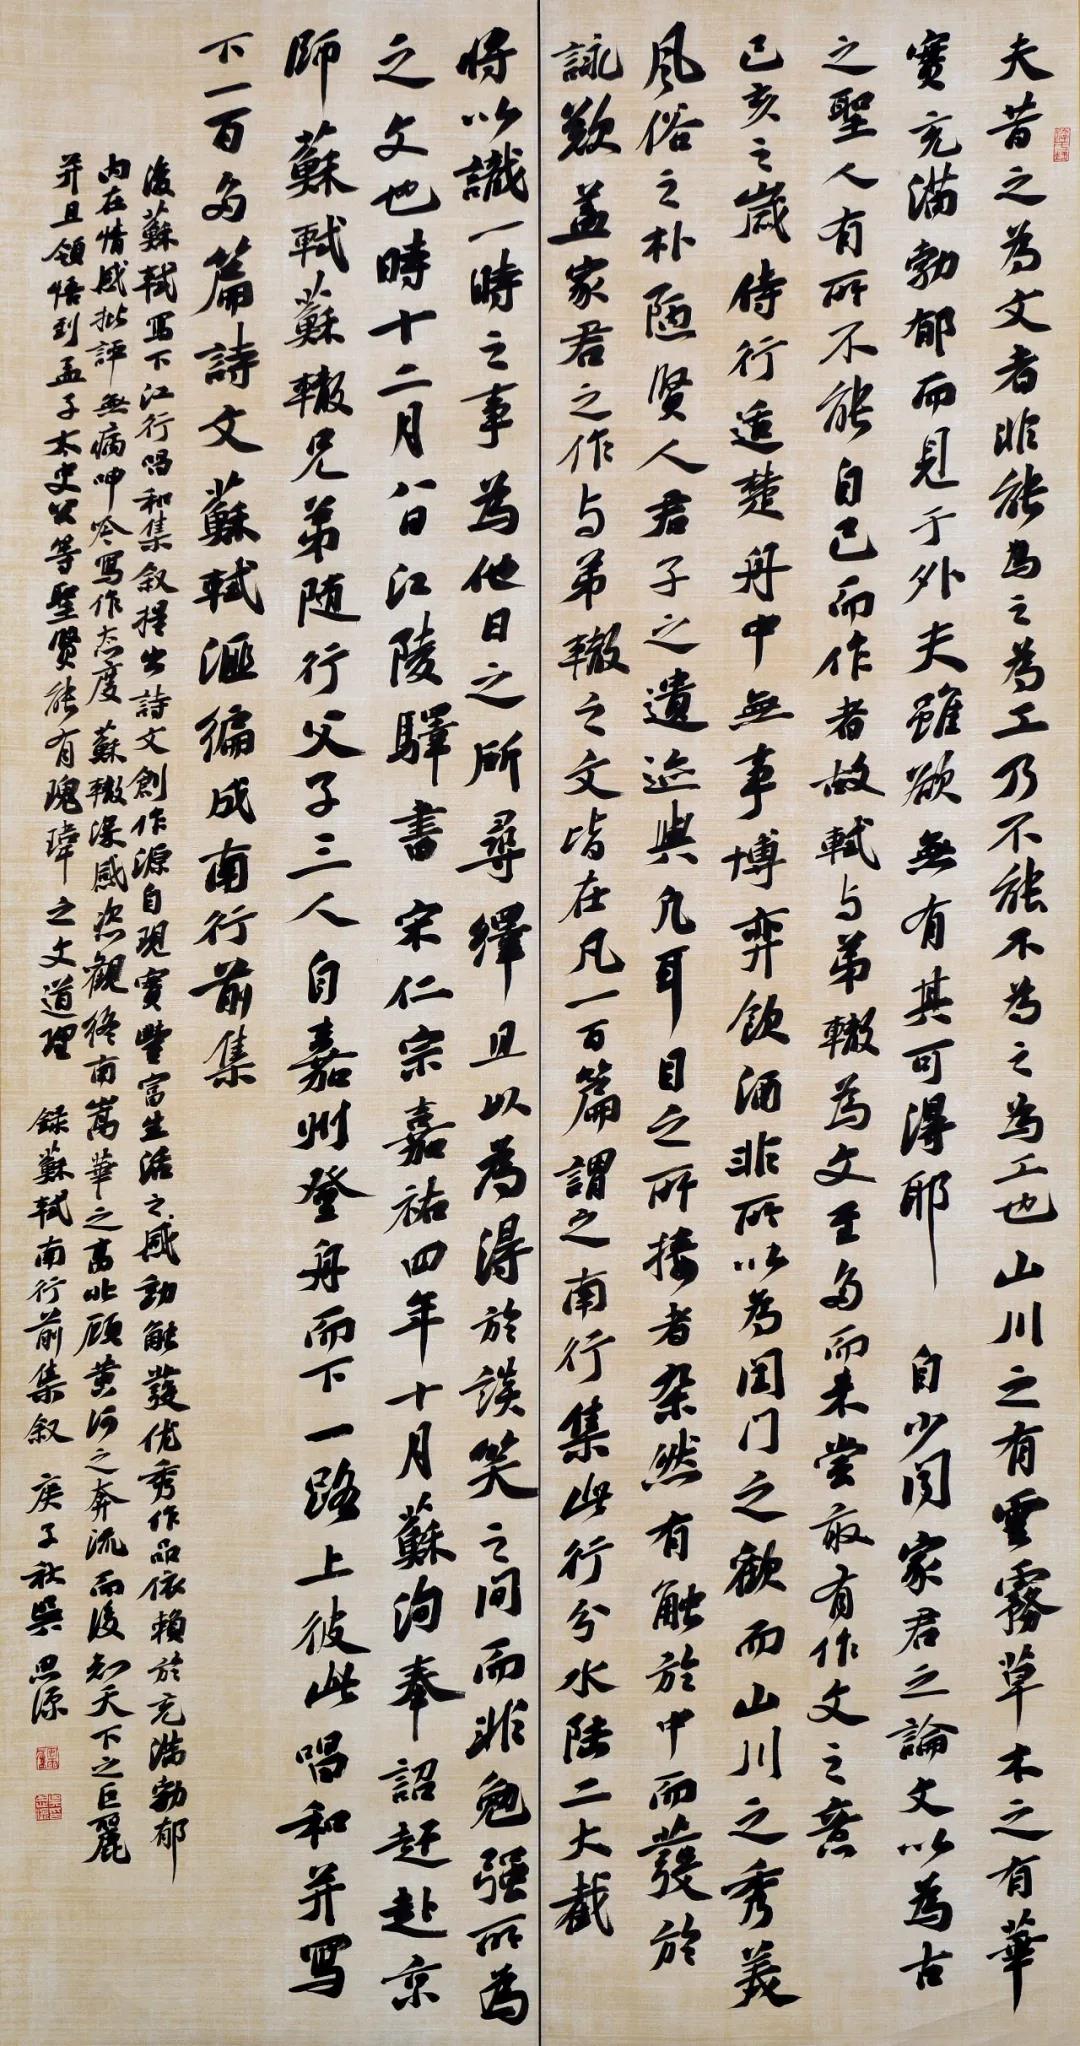 夫昔之為文者非能為之為工乃不能不為之為工也山川之有雲霧草木之有華
實充滿勃郁而見于外夫雖欲無有其可得耶自少聞家君之論文以為古
之聖人有所不能自已而作者故軾与弟轍為文至多而未嘗敢有作文之意
己亥之歲侍行适楚舟中無事博弈飲酒非所以為閨门之歡而山川之秀美
風俗之朴陋贤人君子之遺迹與凡耳目之所接者杂然有触於中而發於
詠歎蓋家君之作与弟轍之文皆在凡一百篇謂之南行集此行分水陸二大截
将以識一時之事為他日之所尋繹且以為得於談笑之间而非勉强所為
之文也時十二月八日江陵驛書宋仁宗嘉祐四年十月蘇洵奉詔赶赴京
師蘇軾蘇轍兄弟随行父子三人自嘉州登舟而下一路上彼此唱和并写
下一百多篇詩文蘇軾滙编成南行前集
後蘇軾写下江行唱和集叙提出詩文創作源自現實豐富生活之感動触發优秀作品依賴於充满勃郁
内在情感批評無病呻吟写作态度蘇轍深感恣觀终南嵩華之高北顾黄河之奔流而後知天下之巨麗
并且领悟到孟子太史公等聖贤能有瑰瑋之文道理
録蘇軾南行前集叙庚子秋吳思源